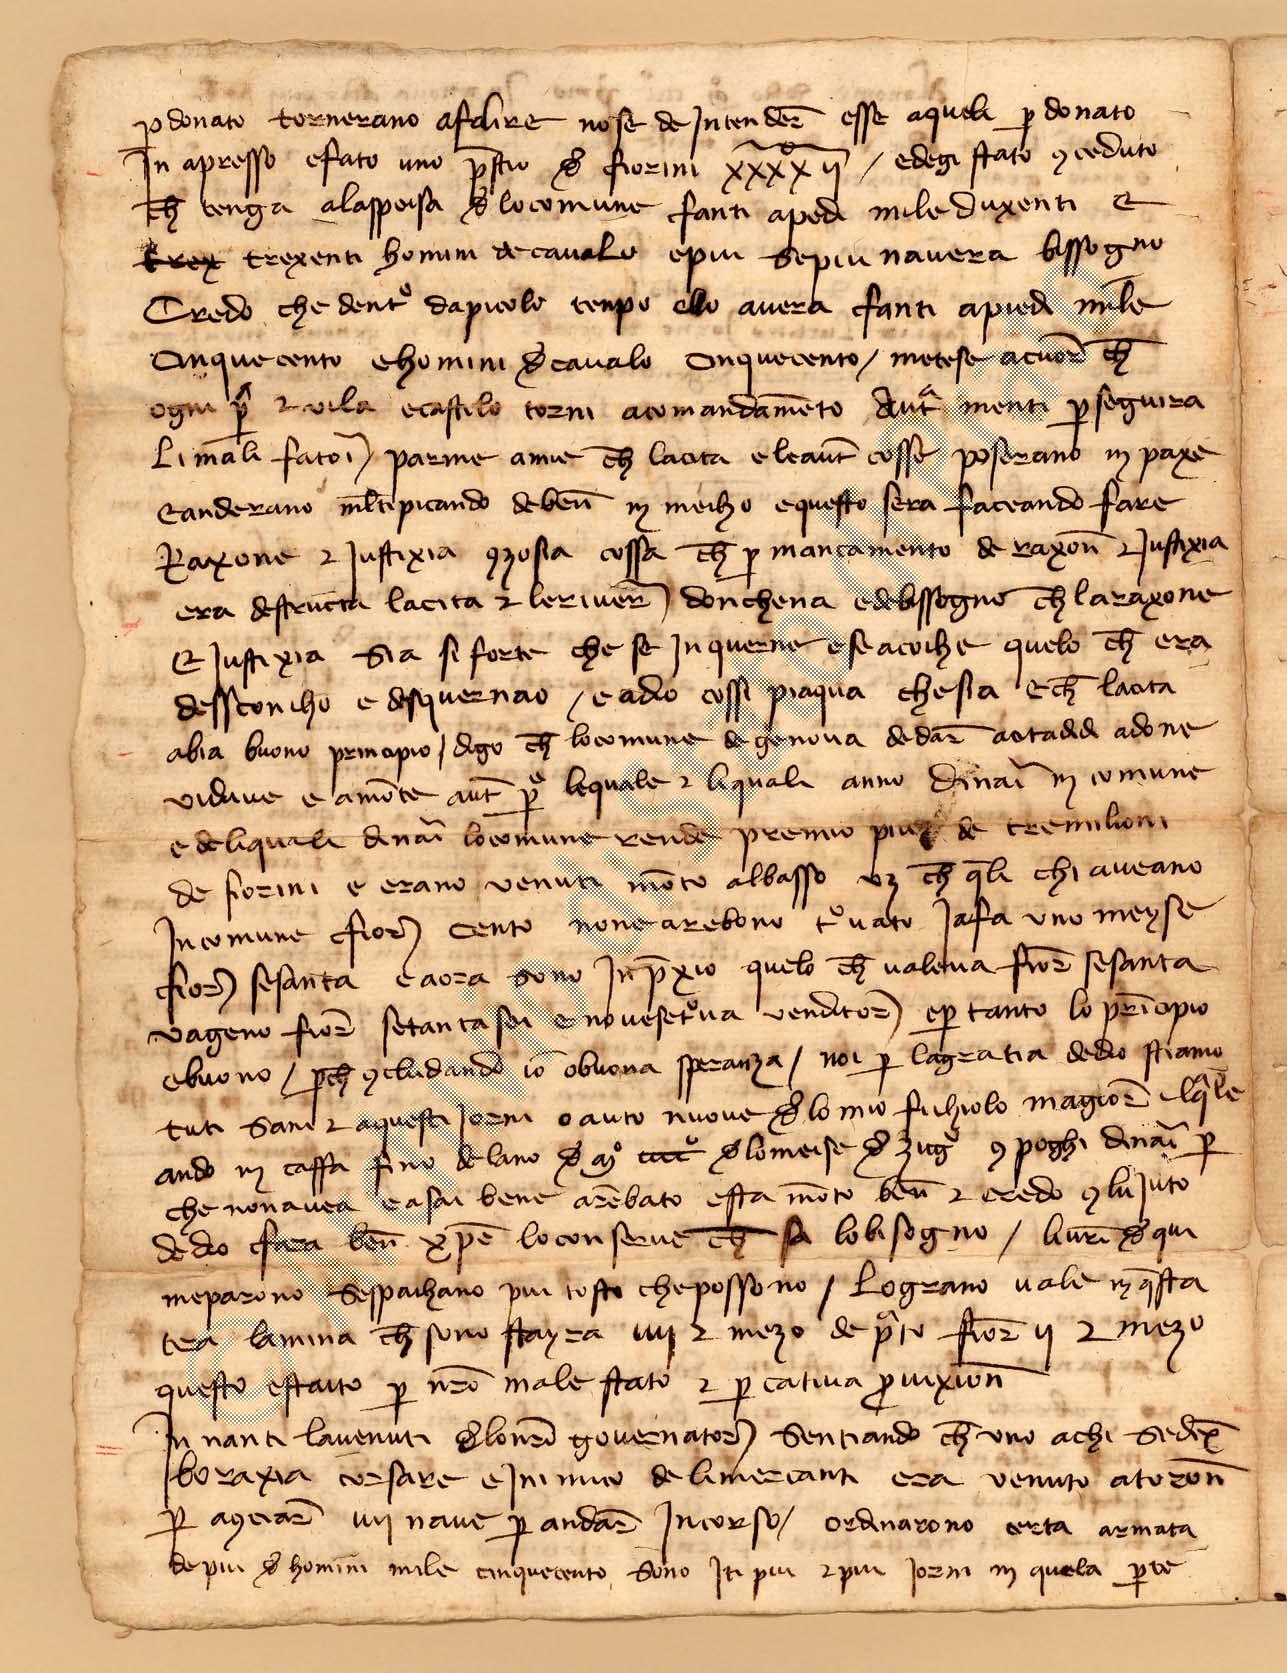 p donato tornerano afalire nose de Intender esse aqueli p donato
In apresso efato uno pstio d fiorini xxxx ii / edegi stato 9ceduto
ch tenga alasspeisa d locomune fanti apedi mile duxenti E
trex trexenti homini de cavalo epiu sepiu navera bissogno
Credo che dentº dapicolo tenpo ello avera fanti apiedi mile
Cinquecento ehomini d cavalo Cinquecento / metese acuor ch
ogni 2 vila ecastilo torni acomandamento menti p seguira
Li mali fatoi parme amie ch lacita eleaut cosse poserano in paxe
Eanderano mltipicando deben in meiho equesto sera faceando fare
Raxone 2 Justixia 9zosia cossa ch p mancamento de raxon 2 Justixia
era destructa lacita 2 leriver donchena edebissogno ch laraxone
E Justixia sia si forte che se Inquerne eseacoihe quelo ch era
dessconiho e desquernao / eadio cossi piaqua chesia Ech lacita
abia buono principio / digo ch locomune de genova dedar aotadidi adone
vidave e amonte aut lequale 2 liquali anno dinai in comune
edeliquali dinai locomune rende premio piu de tremilioni
de fiorini e erano venuti monto albasso vz ch qli chi aveano
Incomune fior cento none arebono tºvato Iafa uno meyse
fior sesanta eaora sono Inpxio quelo ch valeua fior sesanta
vageno fior setantasei enovesetºva venditor ep tanto lo principio
ebuono / pch 9cludando io obuona speranza / noi p lagratia dedio stiamo
tuti sani 2 aquesti Jorni oauto nuove d lo mio fiihiolo magior lqale
ando in caffa fino delano d d lomeise d zug 9 poghi dinai p
che nonavea easai bene arebato esta monto ben 2 credo 9 lu Juto
dedio fara ben xpe loconserve ch sa lobisogno / livri d qui
meparono sespaihano piu tosto chepossono / Lograno vale in qsta
tera lamina ch sono stayra iiii 2 mezo de pato fior ii 2 mezo
questo estaito p nro male stato 2 p cativa pvixion
In nanti lavenuti d lonri governator sentiando ch uno achi sedix
boraxia corsare e Inimico delimercanti era venuto atoron
p a9ciar iiii nave p andar Incorso / ordinarono certa armata
depiu d homini mile cinquecento sono Iti piu 2 piu Jorni in quela pte